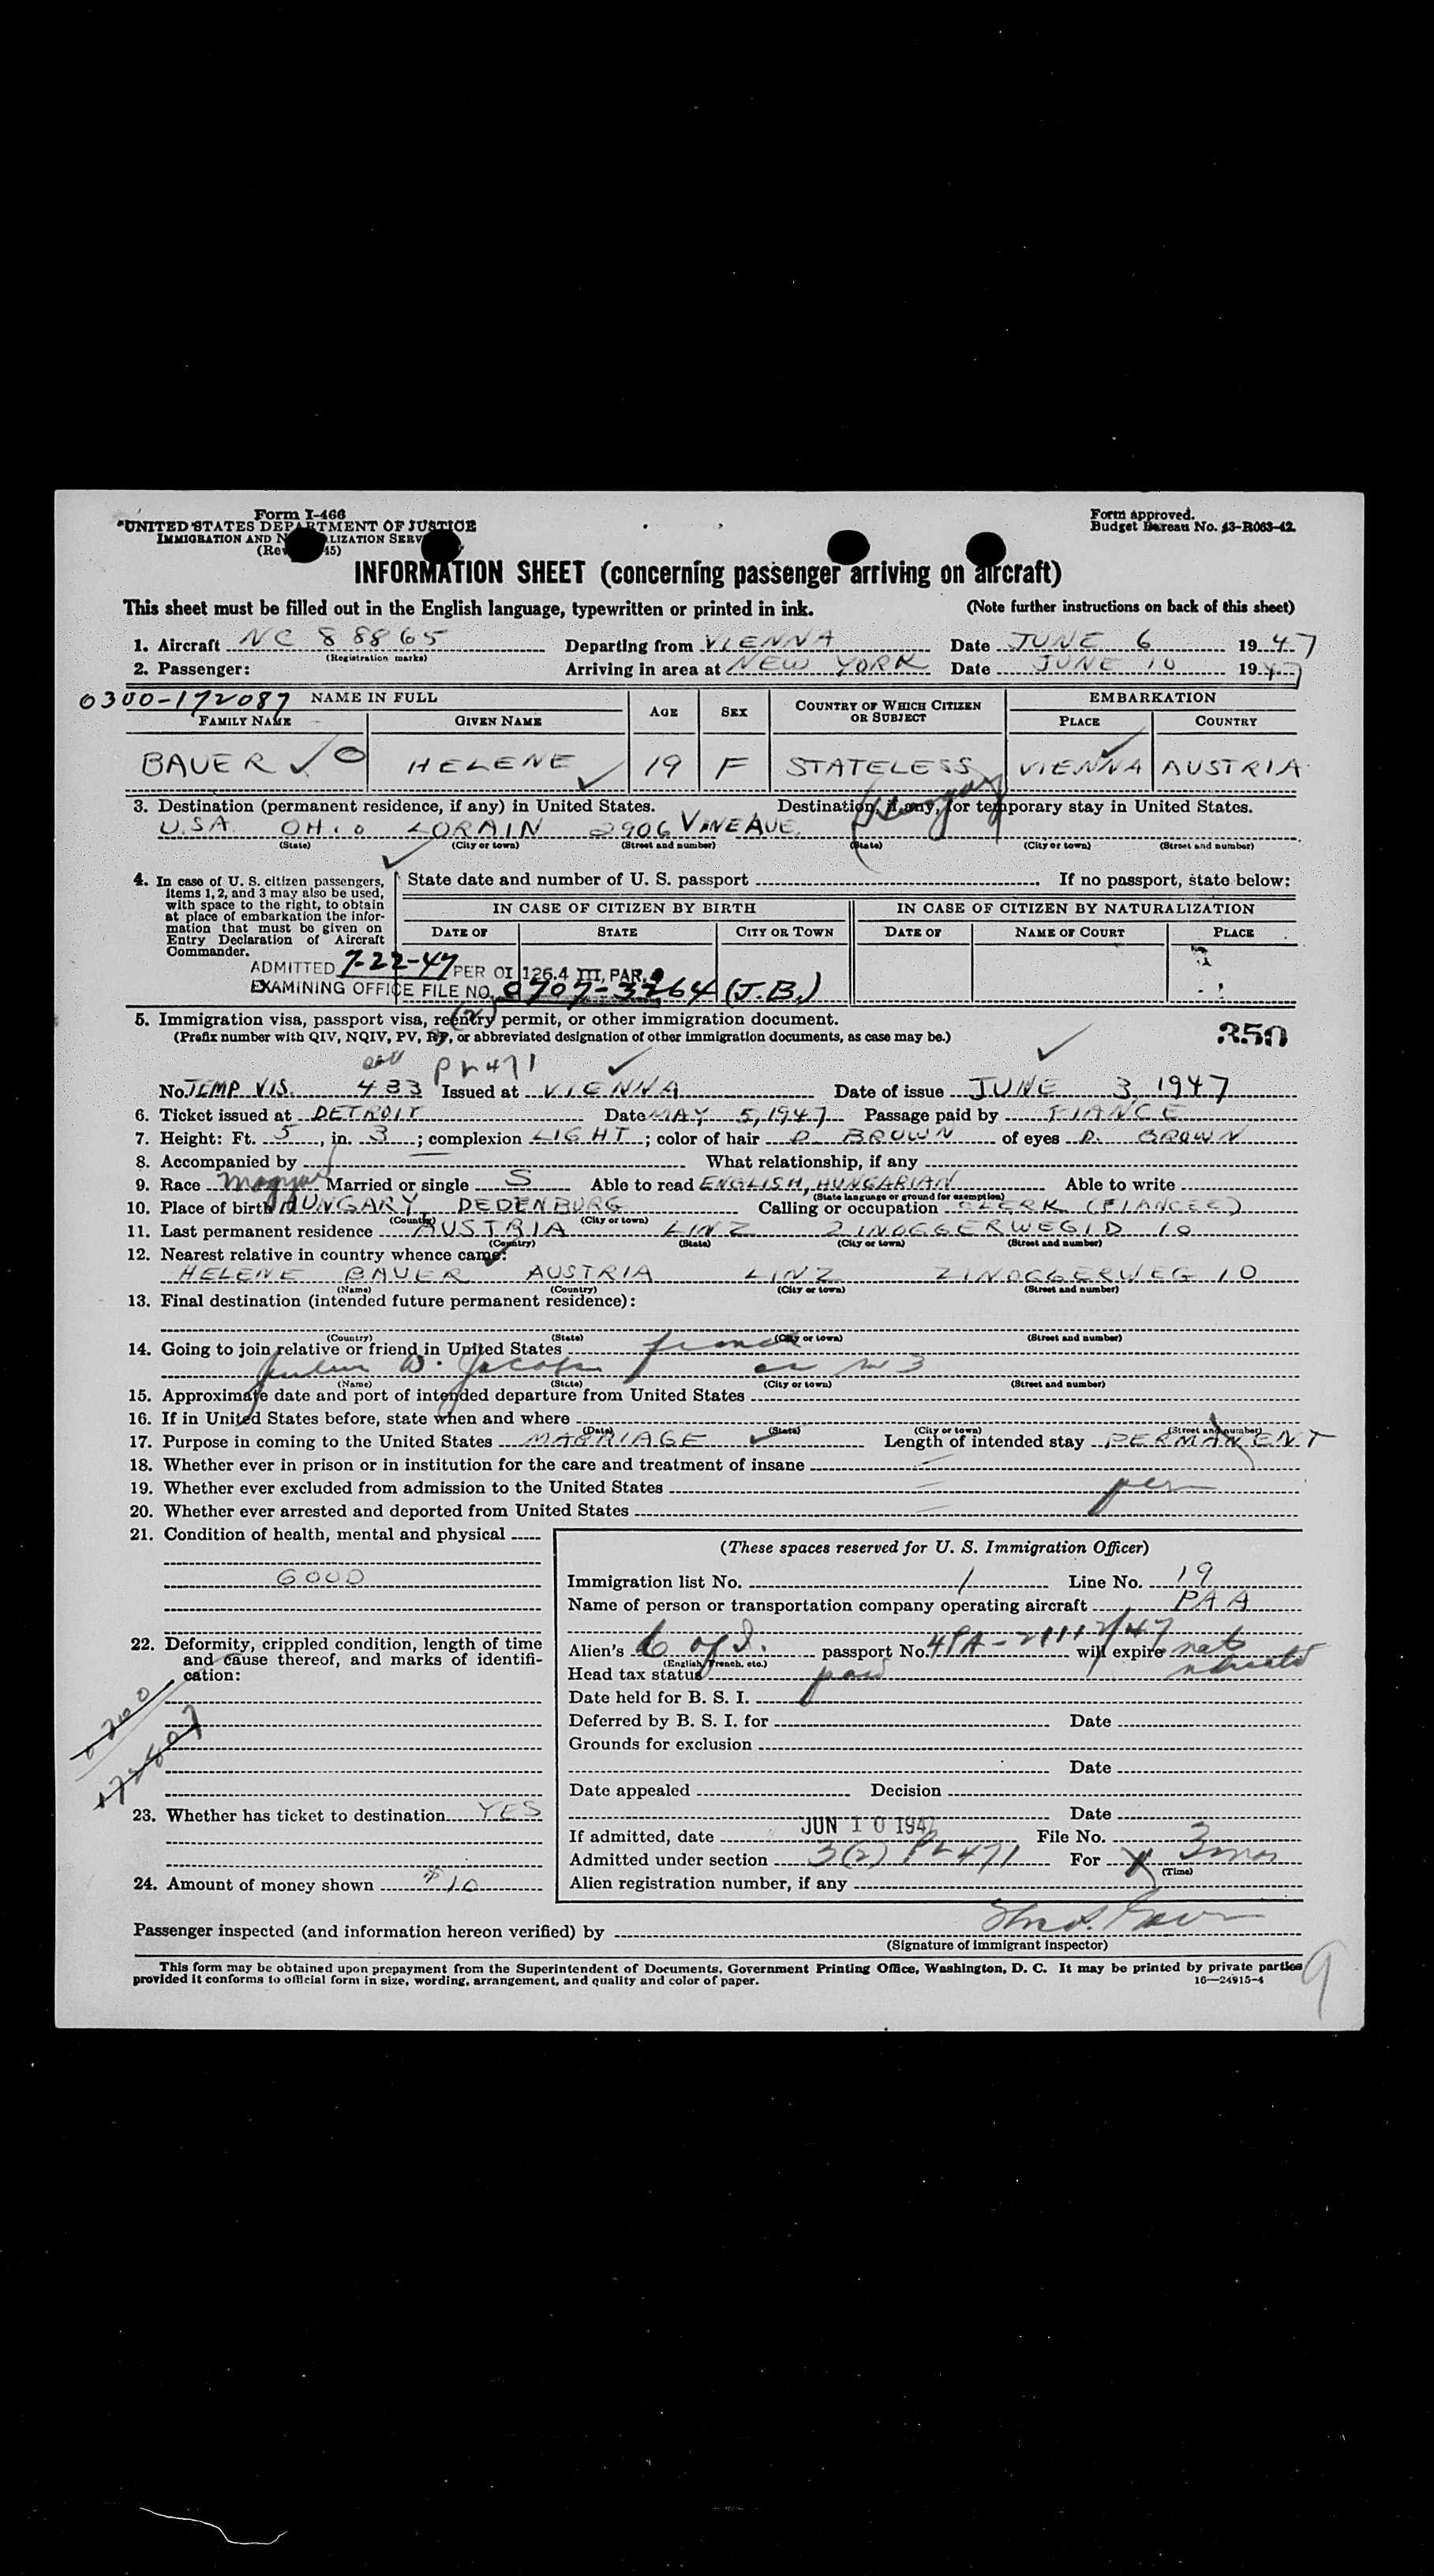 Form I-466
UNITED STATES DEPARTMENT OF JUSTICE
IMMIGRATION AND N LIZATION SERV
(Rev 45)
Form approved.
Budget Bureau No. 43-R063-42.
INFORMATION SHEET (concerning passenger arriving on aircraft)
This sheet must be filled out in the English language, typewritten or printed in ink. (Note further instructions on back of this sheet)
1. Aircraft NC 88865 Departing from VIENNA Date JUNE 6 1947
(Registration marks)
2. Passenger: Arriving in area at NEW YORK Date JUNE 10 1947
0300-172087 NAME IN FULL AGE SEX COUNTRY OF WHICH CITIZEN OR SUBJECT EMBARKATION
FAMILY NAME GIVEN NAME PLACE COUNTRY
BAUER HELENE 19 F STATELESS VIENNA AUSTRIA
3. Destination (permanent residence, if any) in United States. Destination, if any, for temporary stay in United States.
U.S.A. OHio LORAIN 2906 VINE AVE.
(State) (City or town) (Street and number) (State) (City or town) (Street and number)
4. In case of U. S. citizen passengers, items 1, 2, and 3 may also be used, with space to the right, to obtain at place of embarkation the information that must be given on Entry Declaration of Aircraft Commander.
State date and number of U. S. passport If no passport, state below:
IN CASE OF CITIZEN BY BIRTH IN CASE OF CITIZEN BY NATURALIZATION
DATE OF STATE CITY OR TOWN DATE OF NAME OF COURT PLACE
ADMITTED 7-22-47 PER OI 126.4 III, PAR.
EXAMINING OFFICE FILE NO. 0707-3264 (J.B.)
5. Immigration visa, passport visa, reentry permit, or other immigration document.
(Prefix number with QIV, NQIV, PV, RP, or abbreviated designation of other immigration documents, as case may be.)
350
PL 471
No. TEMP VIS. 433 Issued at VIENNA Date of issue JUNE 3, 1947
6. Ticket issued at DETROIT Date MAY 5, 1947 Passage paid by FIANCE
7. Height: Ft. 5, in. 3; complexion LIGHT; color of hair D. BROWN of eyes D. BROWN
8. Accompanied by What relationship, if any
9. Race Magyar Married or single S Able to read ENGLISH, HUNGARIAN Able to write
(State language or ground for exemption)
10. Place of birth HUNGARY DEDENBURG Calling or occupation CLERK (FIANCEE)
(Country) (City or town)
11. Last permanent residence AUSTRIA LINZ ZINOGGERWEGID 10
(Country) (State) (City or town) (Street and number)
12. Nearest relative in country whence came:
HELENE BAUER AUSTRIA LINZ ZINOGGERWEG 10
(Name) (Country) (City or town) (Street and number)
13. Final destination (intended future permanent residence):
(Country) (State) (City or town) (Street and number)
14. Going to join relative or friend in United States fiance
W. Jacobs as in 3
(Name) (State) (City or town) (Street and number)
15. Approximate date and port of intended departure from United States
16. If in United States before, state when and where
(Date) (State) (City or town) (Street and number)
17. Purpose in coming to the United States MARRIAGE Length of intended stay PERMANENT
18. Whether ever in prison or in institution for the care and treatment of insane
19. Whether ever excluded from admission to the United States per
20. Whether ever arrested and deported from United States
21. Condition of health, mental and physical
GOOD
22. Deformity, crippled condition, length of time and cause thereof, and marks of identification:
23. Whether has ticket to destination YES
24. Amount of money shown $10
(These spaces reserved for U. S. Immigration Officer)
Immigration list No. 1 Line No. 19
Name of person or transportation company operating aircraft PAA
Alien's C of I. passport No. will expire
(English, French, etc.)
Head tax status paid
Date held for B. S. I.
Deferred by B. S. I. for Date
Grounds for exclusion
Date
Date appealed Decision
Date
If admitted, date JUN 10 1947 File No.
Admitted under section 3(2) PL 471 For 3 mos
(Time)
Alien registration number, if any
Passenger inspected (and information hereon verified) by
(Signature of immigrant inspector)
This form may be obtained upon prepayment from the Superintendent of Documents, Government Printing Office, Washington, D. C. It may be printed by private parties
provided it conforms to official form in size, wording, arrangement, and quality and color of paper. 16—24915-4
9